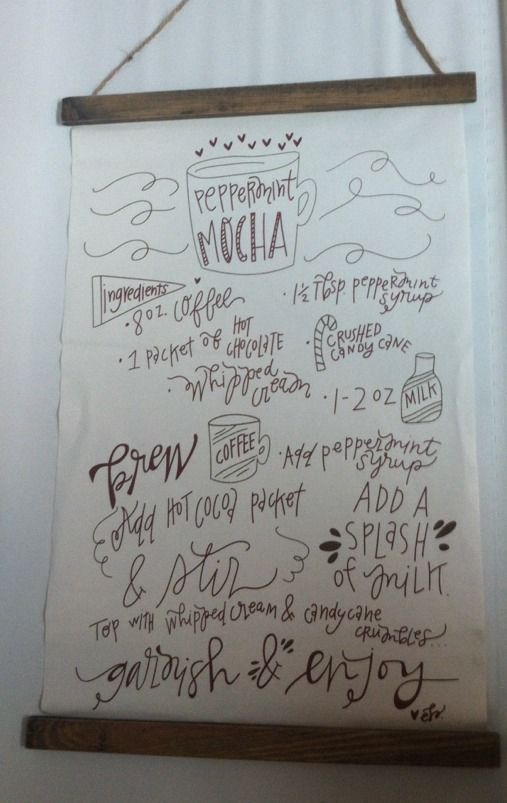 peppermint
MOCHA
ingredients
· 8 oz. coffee
· 1 packet of HOT CHOCOLATE
· whipped cream
· 1½ Tbsp. peppermint syrup
· CRUSHED CANDY CANE
· 1-2 oz MILK
brew COFFEE
· Add peppermint syrup
Add HOT COCOA packet
& stir
ADD A
SPLASH
of MILK.
TOP WITH whipped cream & candycane
crumbles...
garnish & enjoy